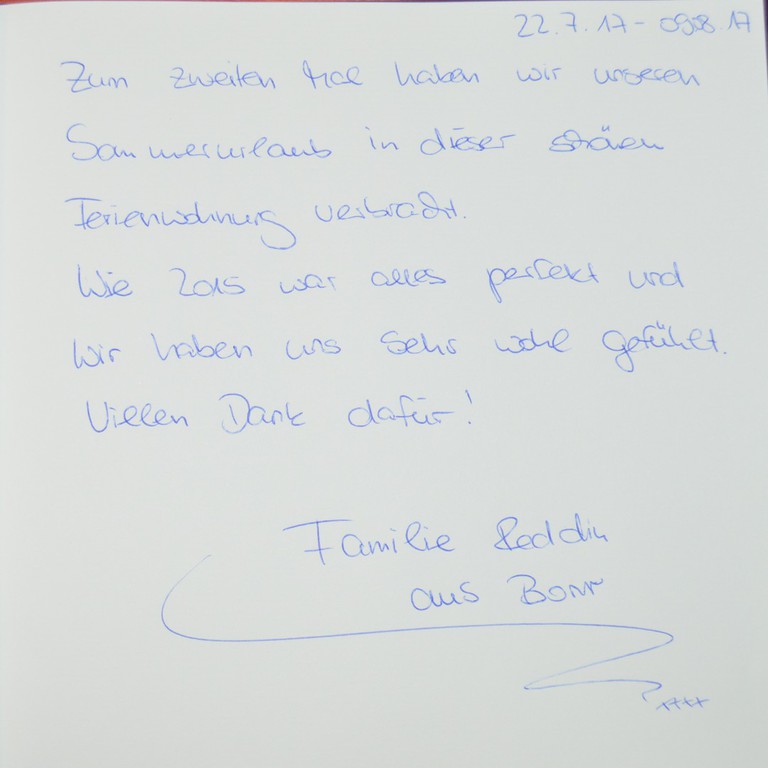 22.7.17 - 09.08.17
Zum zweiten Mal haben wir unseren
Sommerurlaub in dieser schönen
Ferienwohnung verbracht.
Wie 2015 war alles perfekt und
wir haben uns sehr wohl gefühlt.
Vielen Dank dafür!
Familie Reddin
aus Bonn